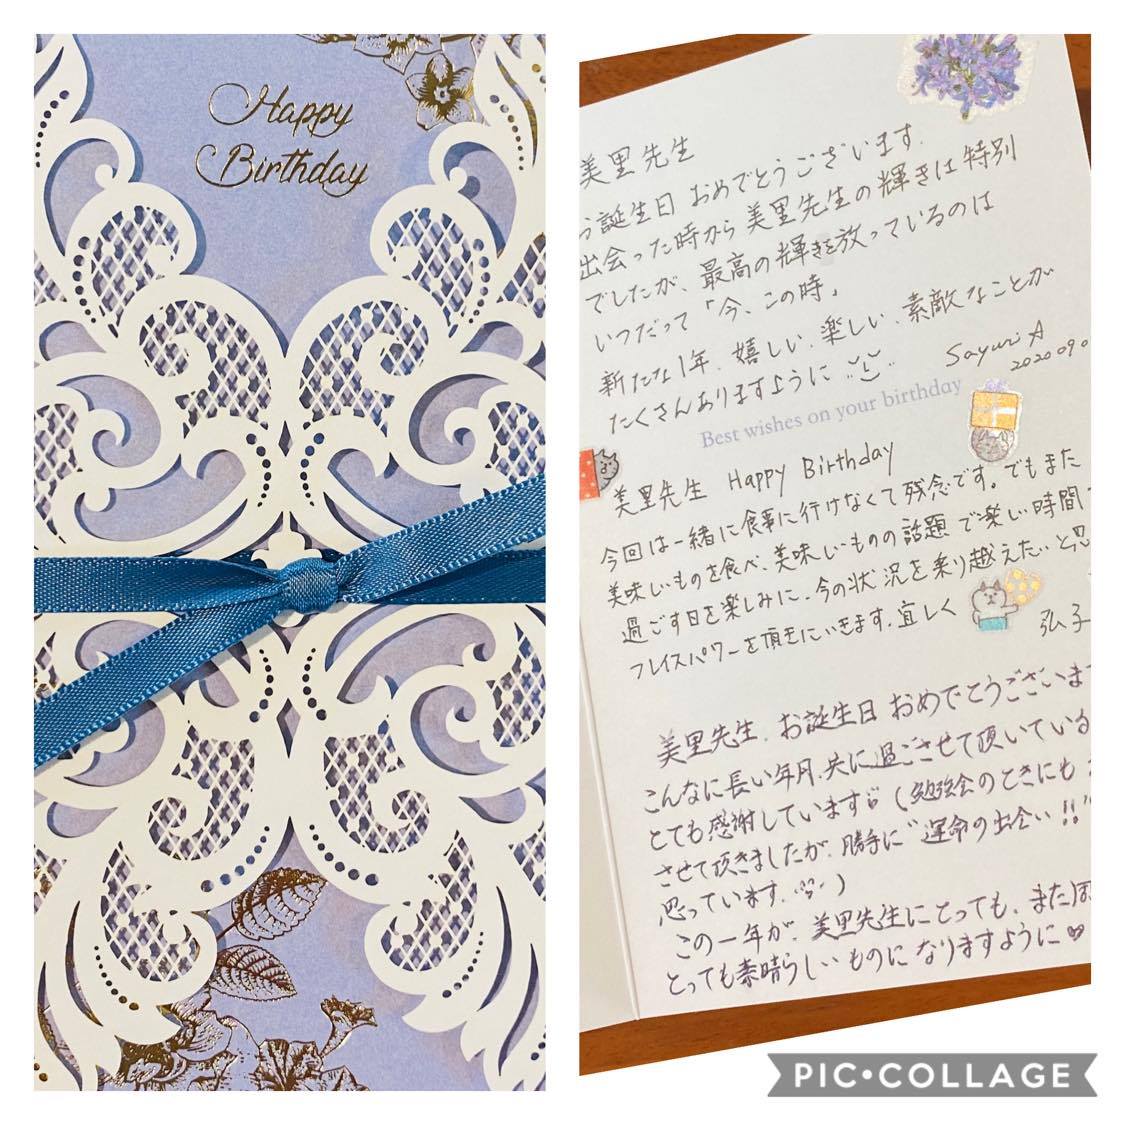 Happy
Birthday
美里先生
お誕生日 おめでとうございます.
出会った時から 美里先生の輝きは特別
でしたが、最高の輝きを放っているのは
いつだって「今、この時」
新たな1年、嬉しい、楽しい、素敵なことが
たくさんありますように
Sayuri A
2020 09 0
Best wishes on your birthday
美里先生 Happy Birthday
今回は一緒に食事に行けなくて残念です。でもまた
美味しいものを食べ、美味しいものの話題で楽しい時間
過ごす日を楽しみに、今の状況を乗り越えたいと
フレイスパワーを頂きにいきます.宜しく
弘子
美里先生.お誕生日おめでとうございま
こんなに長い年月.共に過ごさせて頂いている
とても感謝しています (勉強会のときにも
させて頂きましたが、勝手に"運命の出会い!!"
思っています. )
この一年が、美里先生にとっても、また
とても素晴らしいものになりますように♡
PIC•COLLAGE